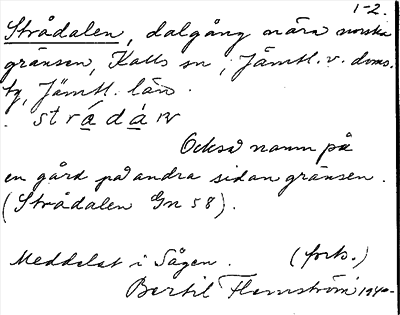 1-2.
Strådalen, dalgång nära norska
gränsen, Kalls sn, Jämtl. v. doms.
tg, Jämtl. län.
Också namn på
en gård på andra sidan gränsen.
(Strådalen Gn 58).
Meddelat i Sågen. (forts.)
Bertil Flemström 1940-